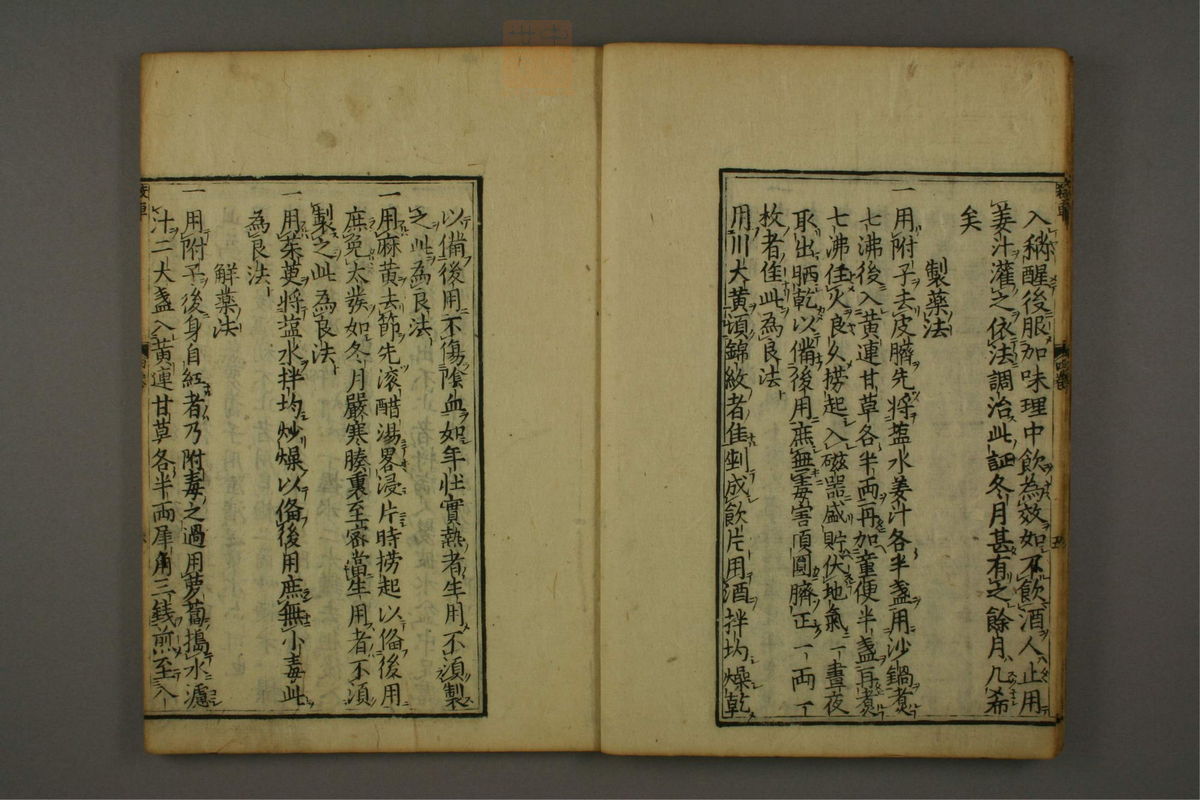 入稍醒後服加味理中飲為效如不飲酒人止用
姜汁灌之依法調治此証冬月甚有之餘月几希
矣
製藥法
一用附子去皮臍先將塩水姜汁各半盞用沙鍋煮
七沸後入黄連甘草各半両再加童便半盞再煮
七沸住火良久撈起入磁器盛貯伏地氣一晝夜
取出晒乾以備後用庶無毒害頂圓臍正一両一
枚者佳此為良法
用川大黄須錦紋者佳剉成飲片用酒拌均燥乾
以備後用不傷陰血如年壮實熱者生用不須製
之此為良法
一用麻黄去節先滚醋湯畧浸片時撈起以备後用
庶免太發如冬月嚴寒腠裏至密當生用者不須
製之此為良法
一用茱萸將塩水拌均炒燥以备後用庶無小毒此
為良法
觧藥法
一用附子後身自紅者乃附毒之過用萝蔔搗水濾
汁二大盞入黄連甘草各半両犀角三銭煎至八